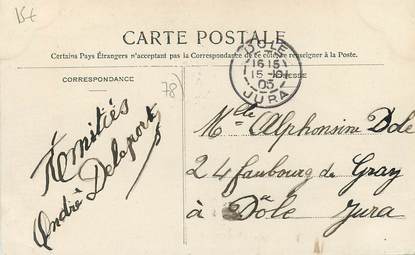 15€
CARTE POSTALE
Certains Pays Étrangers n'acceptant pas la Correspondance de ce côté, se renseigner à la Poste.
CORRESPONDANCE
ADRESSE
DOLE
16 15
15-10
05
JURA
78
Amitiés
André Delaporte
Mlle Alphonsine Dole
24 faubourg de Gray
à Dôle Jura